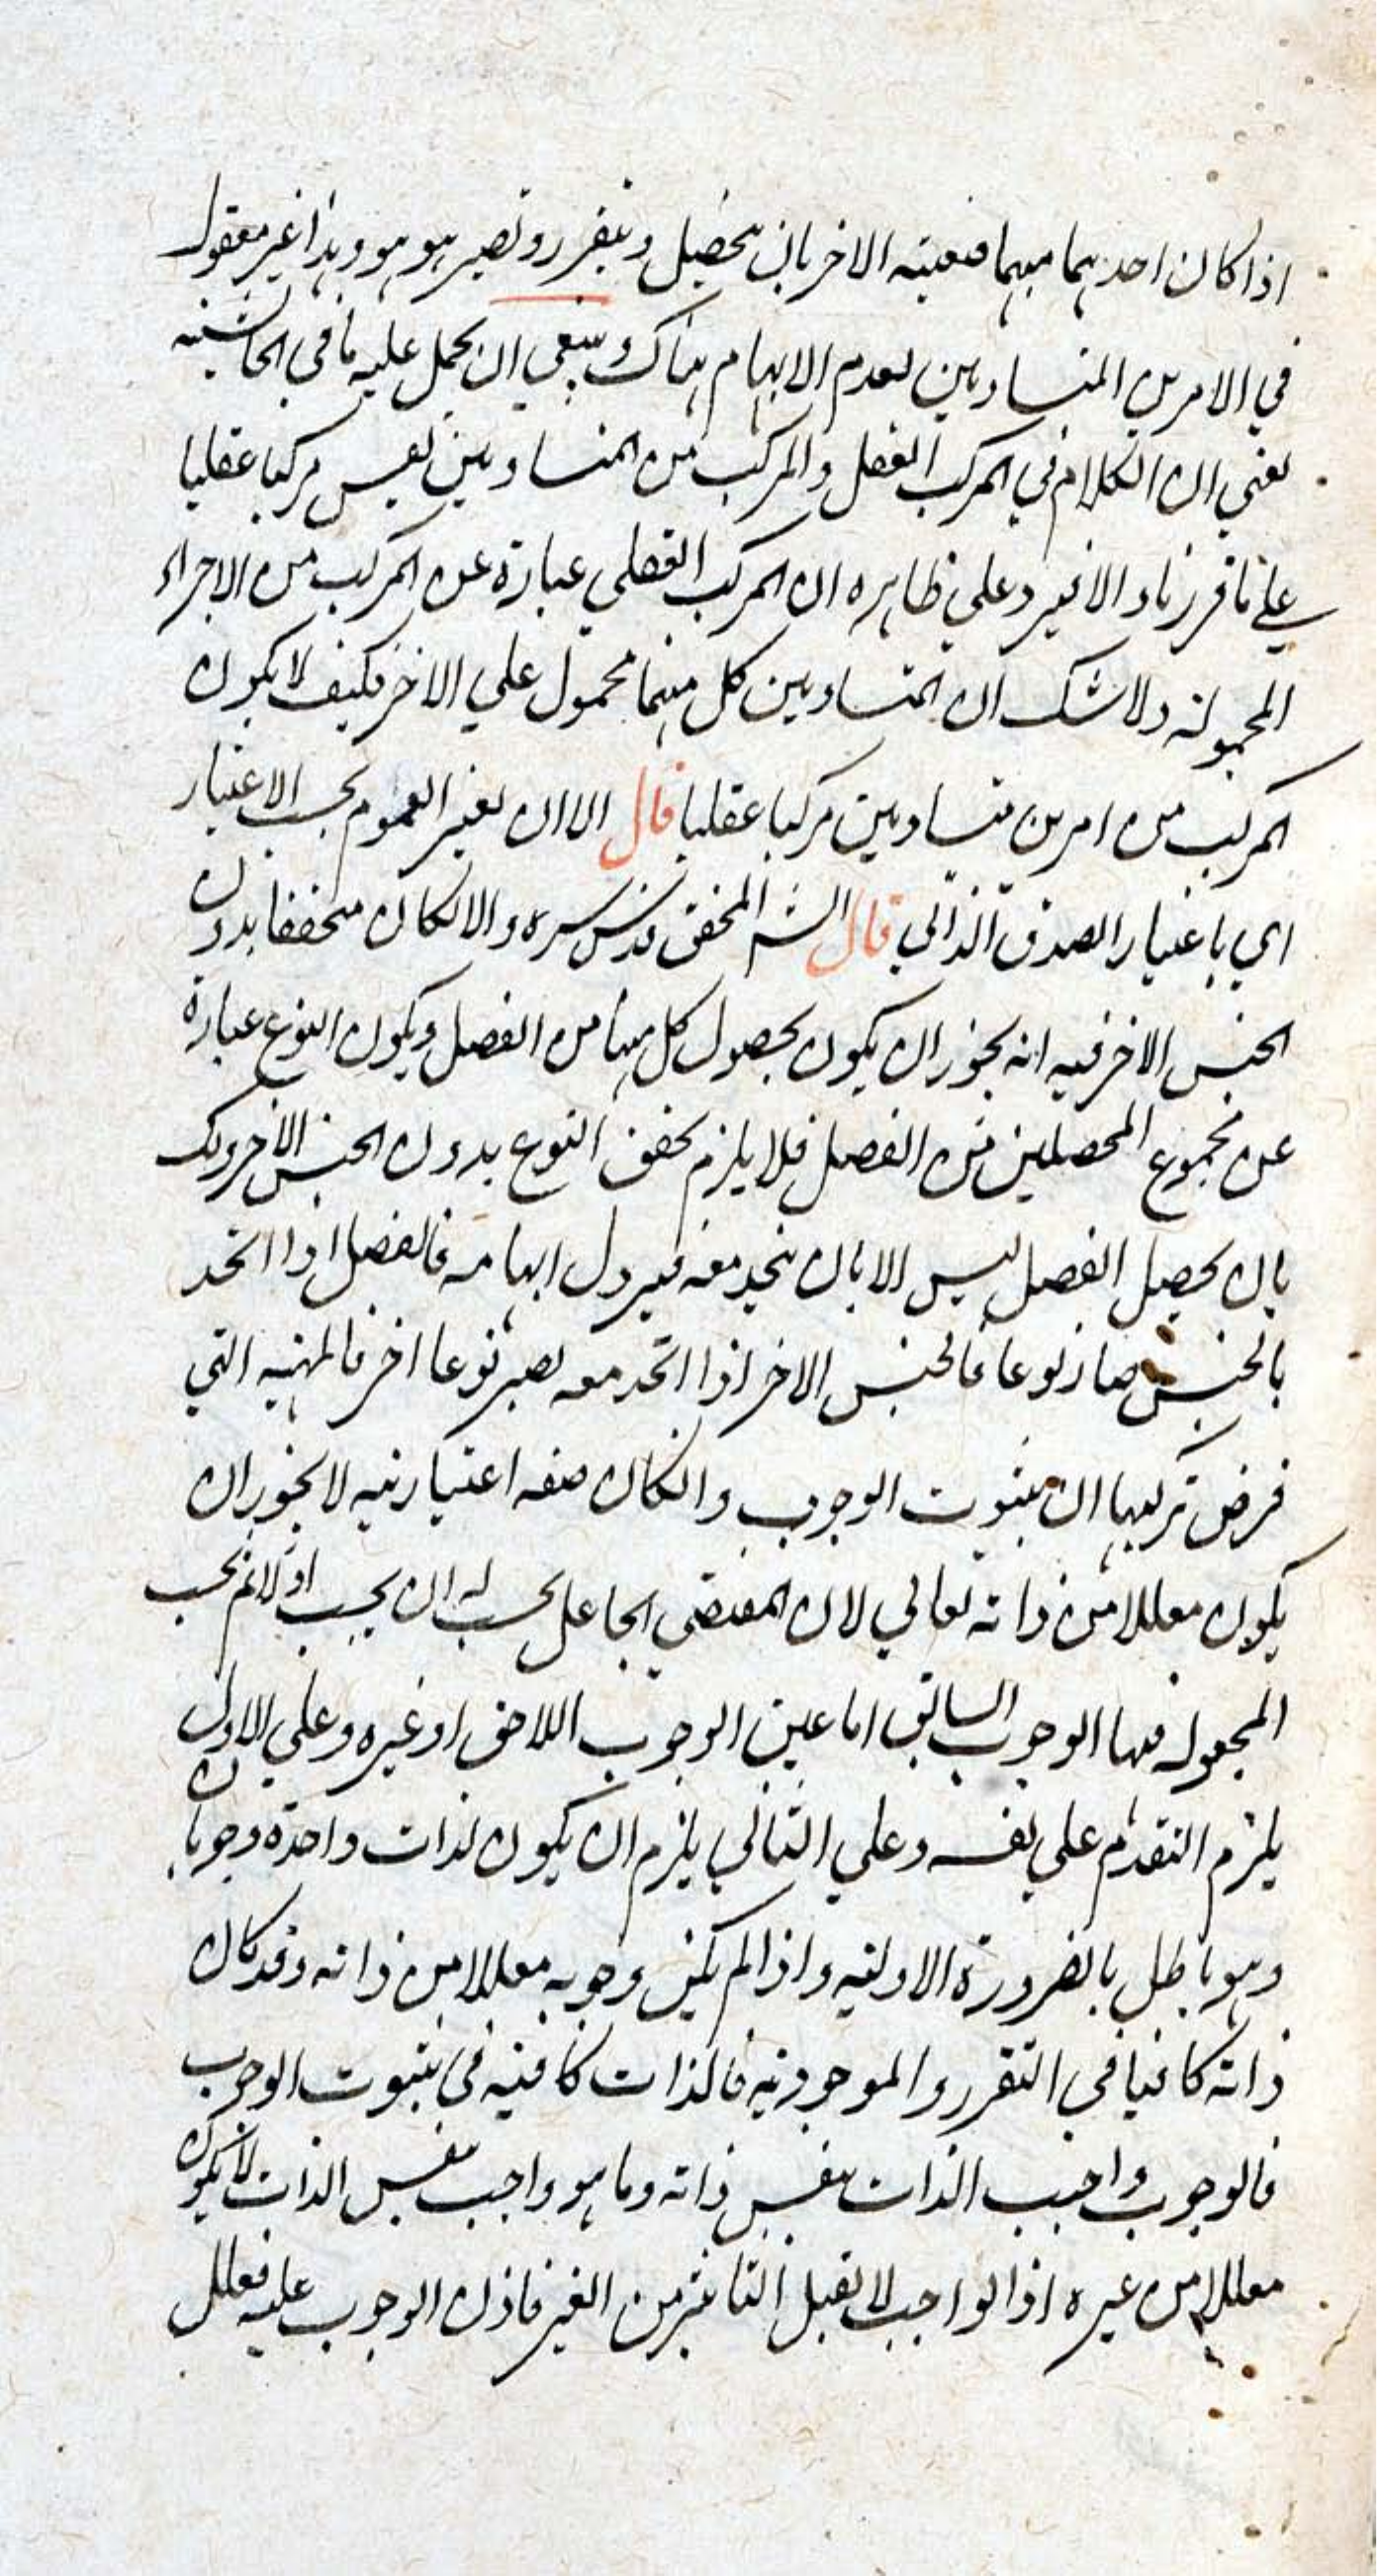 اذا كان احدهما مبهما فيعينه الاخر بان يحصل ويتقرر وتصير هو هو وهذا غير معقول
في الامرين المتساويين لعدم الابهام هناك وينبغي ان يحمل عليه ما في الحاشيه
يعني ان الكلام في المركب العقلي والمركب من المتساويين ليس مركبا عقليا
علي ما قررنا والا فيرد علي ظاهره ان المركب العقلي عبارة عن المركب من الاجزاء
المحمولة ولا شك ان المتساويين كل منهما محمول علي الاخر فكيف لا يكون
المركب من امرين متساويين مركبا عقليا قال الا ان يعتبر العموم بحسب الاعتبار
اي باعتبار الصدق الذاتي قال الش المحقق قدس سره والا لكان متحققا بدون
الجنس الاخر فيه انه يجوز ان يكون يحصل كل منهما من الفصل ويكون النوع عبارة
عن مجموع المحصلين من الفصل فلا يلزم تحقق النوع بدون الجنس الاخر
بان يحصل الفصل ليس الا بان يتحد معه فيزول ابهامه فالفصل اذا اتحد
بالجنس صار نوعا فالجنس الاخر اذا اتحد معه يصير نوعا اخر فالمهيه التي
فرض تركيبها ان ثبوت الوجوب وان كان صفه اعتباريه لا يجوز ان
يكون معللا من ذاته تعالي لان المقتضي الجاعل يجب له ان يجب اولا ثم يجب
المجعول فهذا الوجوب السابق اما عين الوجوب اللاحق او غيره وعلي الاول
يلزم التقدم علي نفسه وعلي الثاني يلزم ان يكون لذات واحدة وجوبان
وهو باطل بالضرورة الاوليه واذا لم يكن وجوبه معللا من ذاته وقد كان
ذاته كافيا في التقرر والموجوديه فالذات كافيه في ثبوت الوجوب
فالوجوب واجب الذات بنفس ذاته وما هو واجب بنفس الذات لا يكون
معللا من غيره اذ الواجب لا يقبل التاثير من الغير فاذن الوجوب عليه